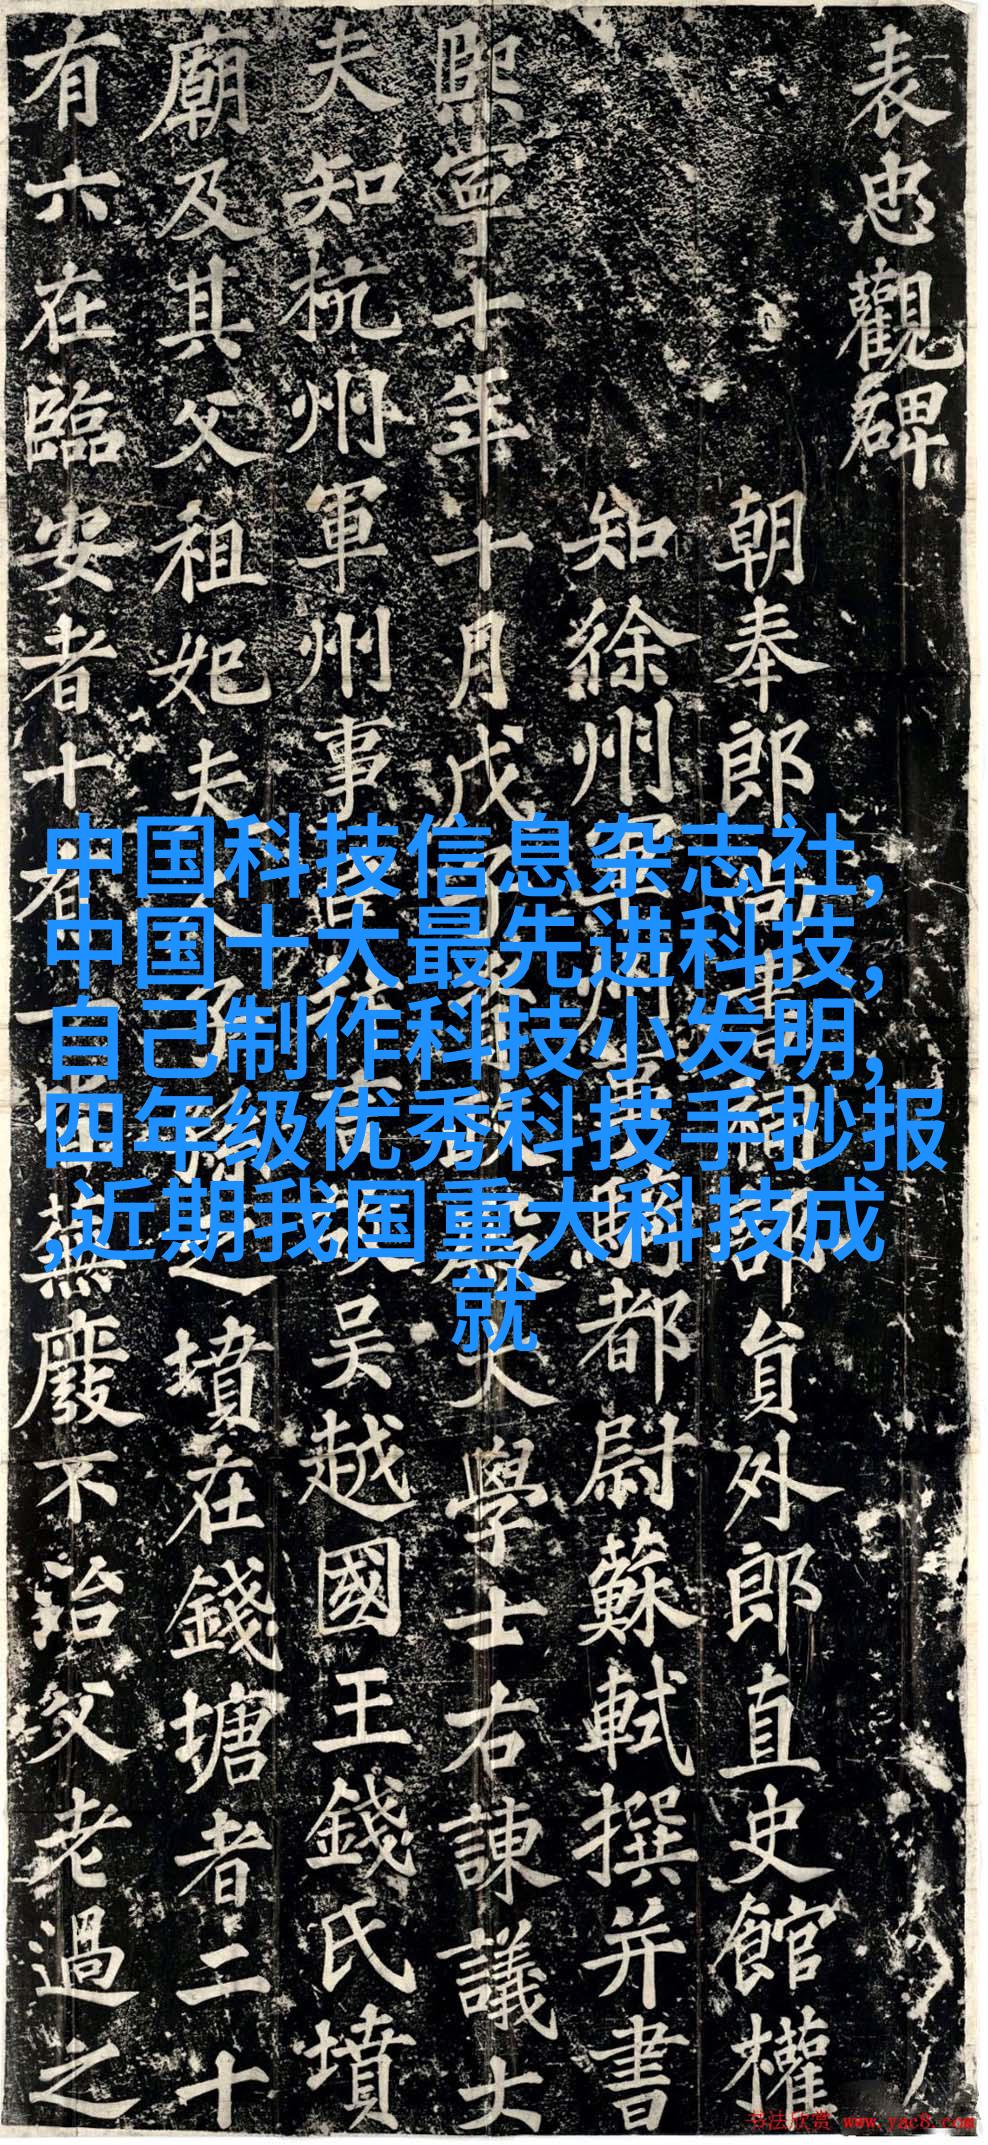 表忠觀碑
朝奉郎尚書祠部員外郎直史館權
知徐州軍州事騎都尉蘇軾撰并書
熙寧十年十月戊子資政殿大學士右諫議大
夫知杭州軍州事臣抃言故吳越國王錢氏墳
廟及其父祖妃夫人子孫之墳在錢塘者二十
有六在臨安者十有一皆蕪廢不治父老過之
中国科技信息杂志社,
中国十大最先进科技,
自己制作科技小发明,
四年级优秀科技手抄报
,近期我国重大科技成
就
书法欣赏 www.yac8.com